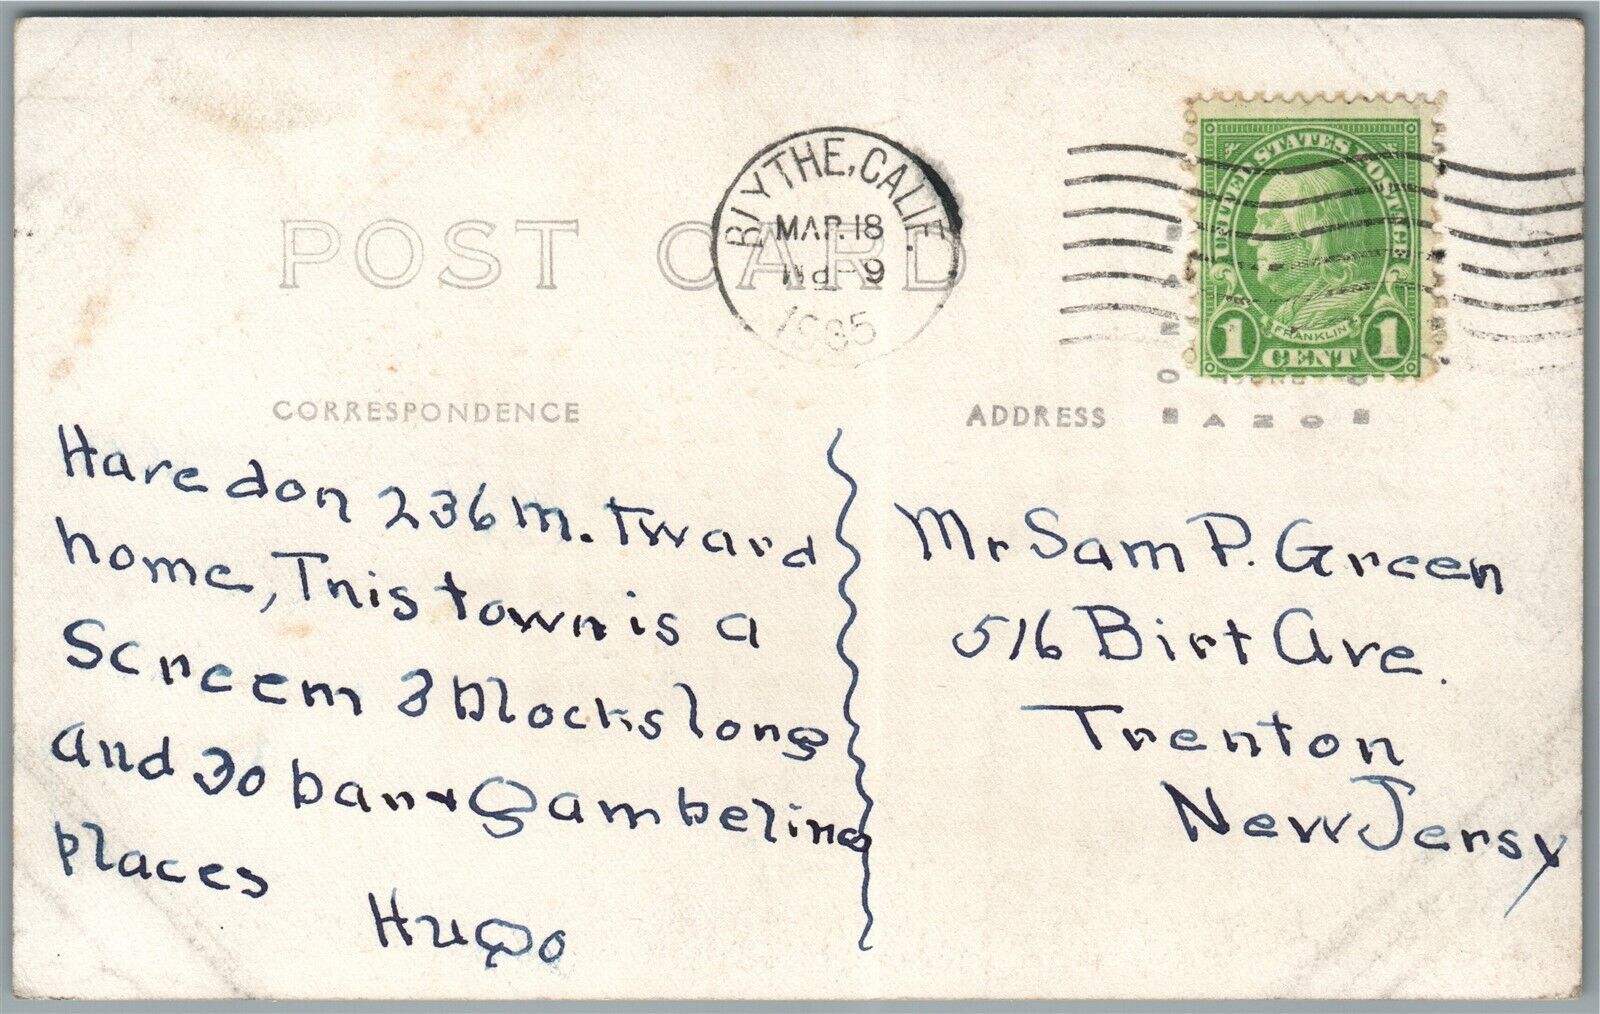 POST CARD
BLYTHE, CALIF.
MAR 18
9
1935
UNITED STATES POSTAGE
FRANKLIN
1 CENT 1
CORRESPONDENCE
ADDRESS
AZO
Have don 236 m. tward
home, This town is a
Screem 3 blocks long
and 30 bar + Gambeling
places
Hugo
Mr Sam P. Green
516 Birt Ave.
Trenton
New Jersy